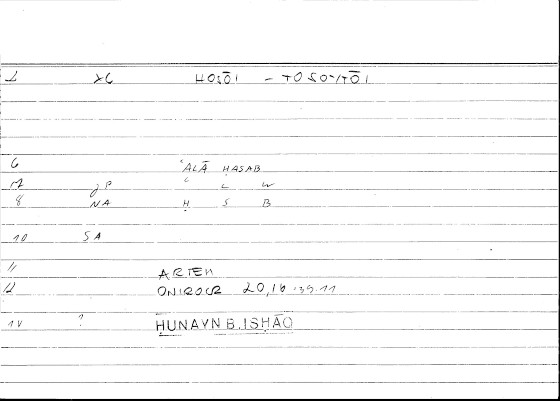 1 XC HOSŌI – TOSOYTŌI
6 ʿALĀ ḤASAB
7 jP ʿ L W
8 NA Ḥ S B
10 SA
11 ARTEM
12 ONIROCR 20,16 :39.11
14 ? ḤUNAYN B. ISḤĀQ